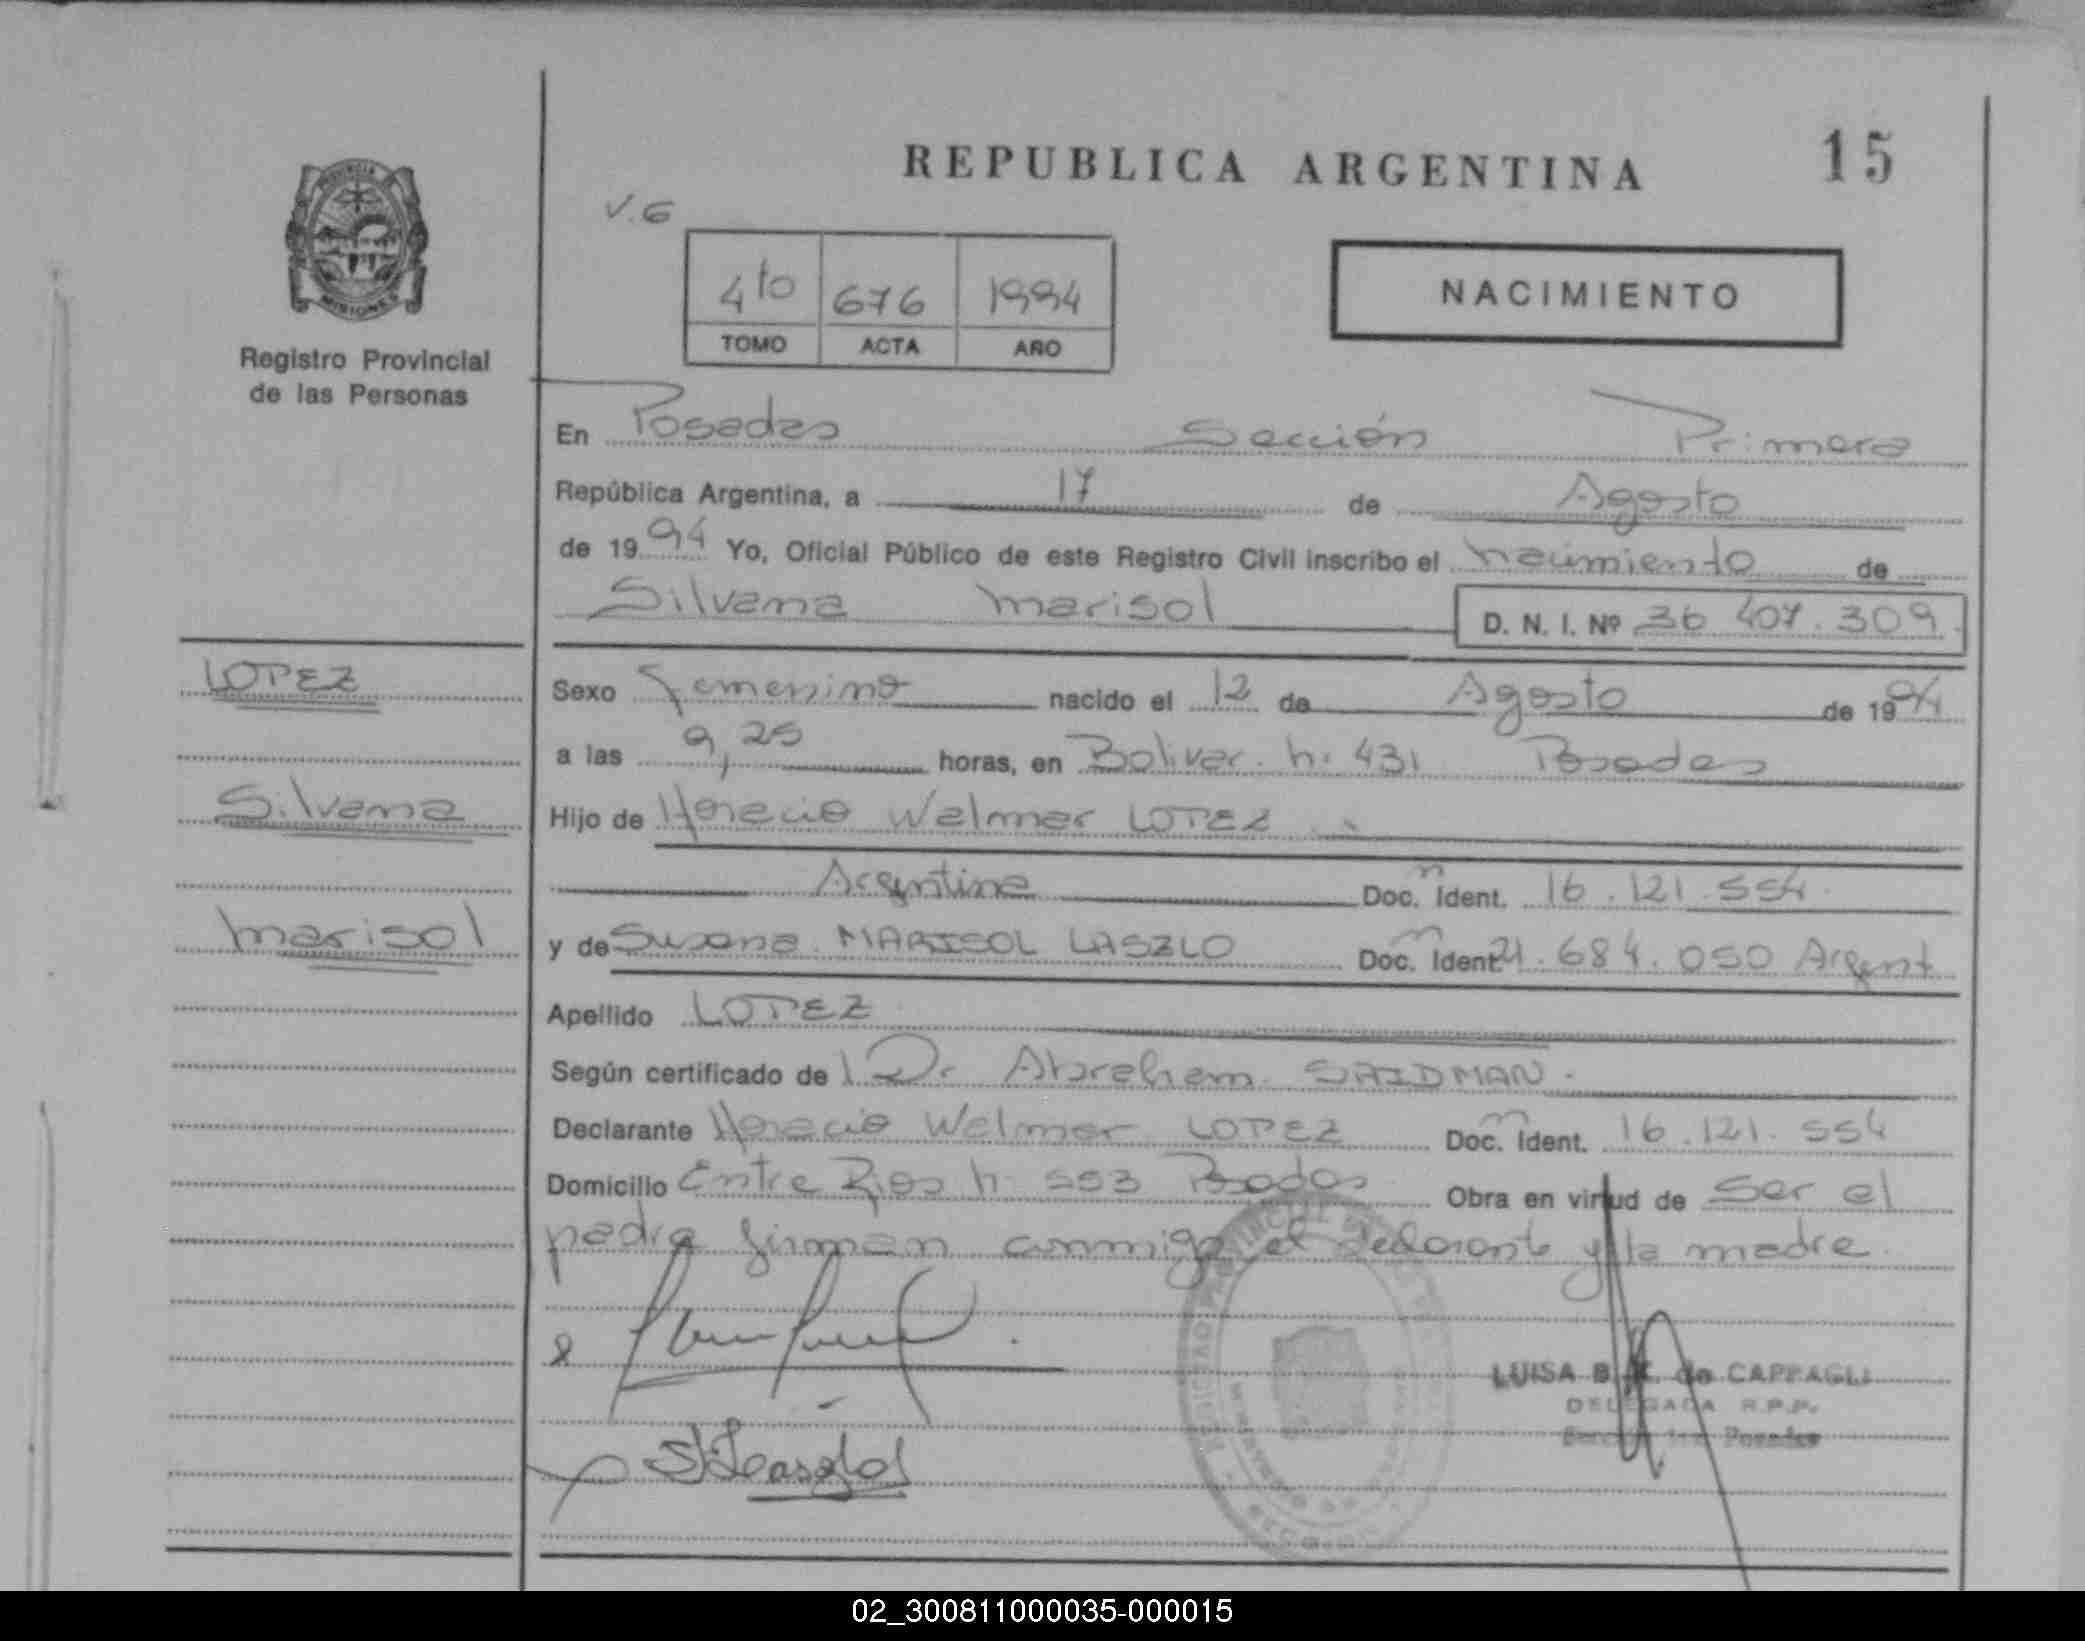 REPUBLICA ARGENTINA
15
PROVINCIA
MISIONES
Registro Provincial
de las Personas
V.6
4to 676 1994
TOMO ACTA AÑO
NACIMIENTO
En Posadas Sección Primera
República Argentina, a 17 de Agosto
de 1994 Yo, Oficial Público de este Registro Civil inscribo el nacimiento de
Silvana Marisol D. N. I. Nº 36 407.309
LOPEZ
Silvana
Marisol
Sexo Femenino nacido el 12 de Agosto de 1994
a las 9,25 horas, en Bolivar. n. 431 Posadas
Hijo de Horacio Welmer LOPEZ
Argentina Doc. Ident. 16.121.554
y de Susana MARISOL LASZLO Doc. Ident 21.684.050 Argent
Apellido LOPEZ
Según certificado de l Dr. Abraham SAIDMAN.
Declarante Horacio Welmer LOPEZ Doc. Ident. 16.121.554
Domicilio Entre Rios n. 553 Posadas Obra en virtud de Ser el
padre firman conmigo el declarante y la madre.
LUISA B. de CAPPAGLI
DELEGADA R.P.P.
Posadas
02_300811000035-000015